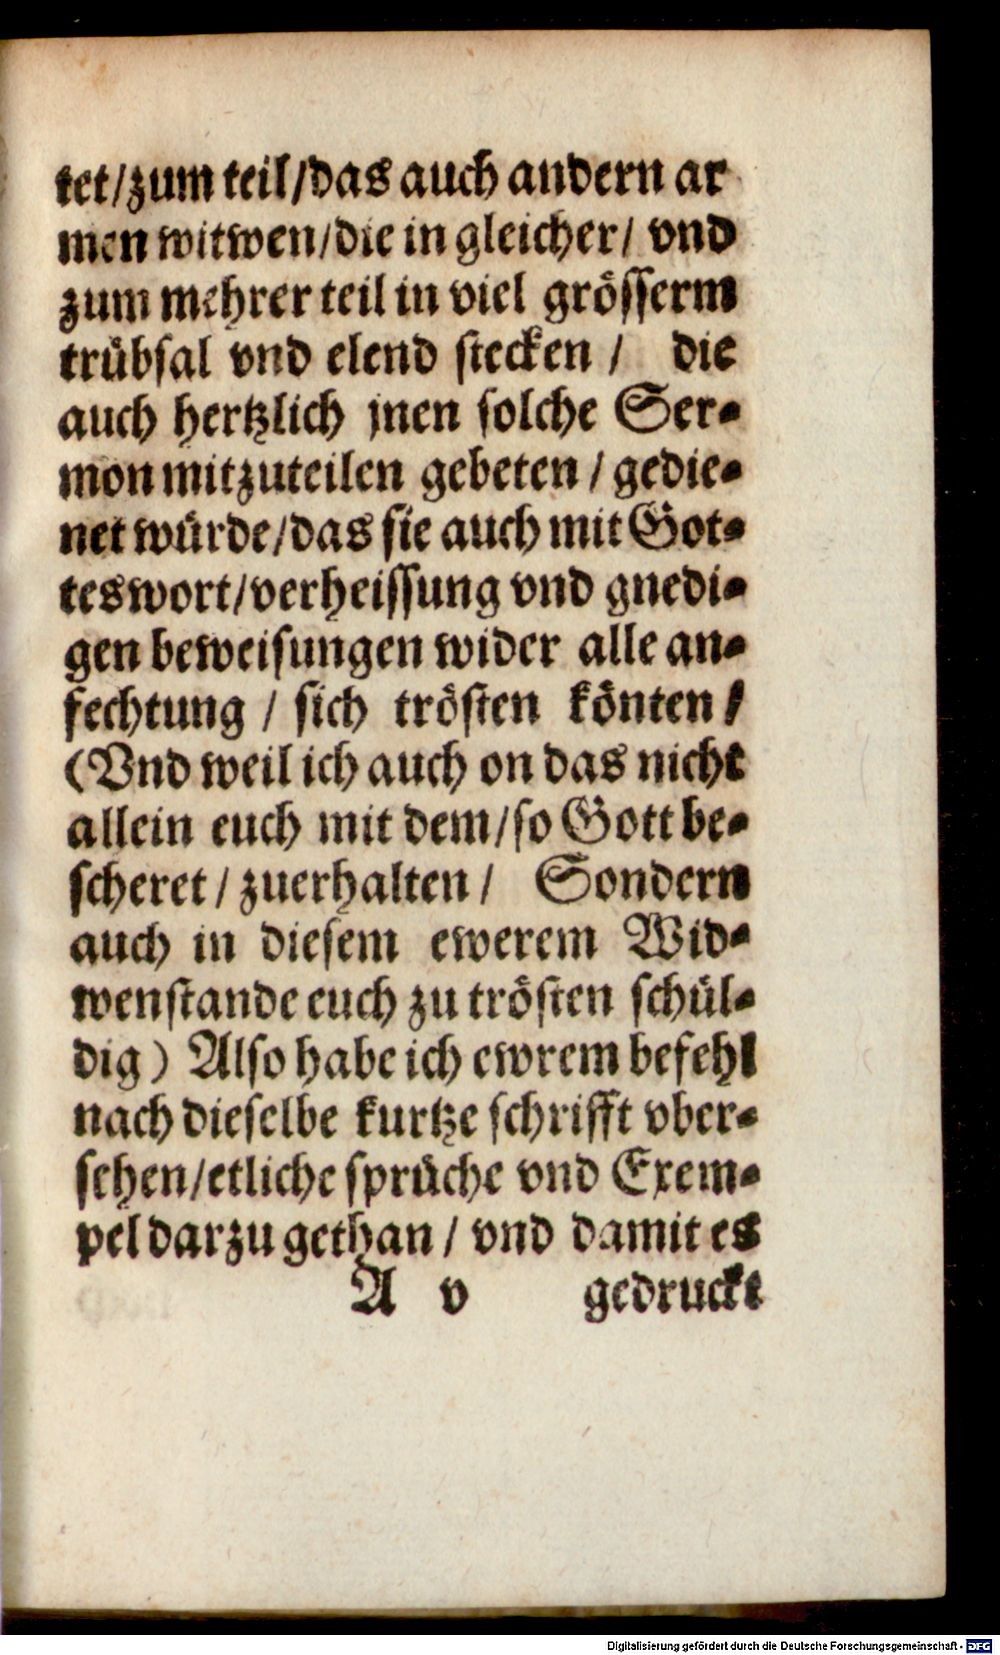 tet/zum teil/das auch andern ar
men witwen/die in gleicher/ vnd
zum mehrer teil in viel grösserm
trübsal vnd elend stecken / die
auch hertzlich jnen solche Ser-
mon mitzuteilen gebeten / gedie-
net würde/das sie auch mit Got-
tes wort/verheissung vnd gnedi-
gen beweisungen wider alle an-
fechtung / sich trösten könten/
(Vnd weil ich auch on das nicht
allein euch mit dem/so Gott be-
scheret / zuerhalten / Sondern
auch in diesem ewerem Wid-
wenstande euch zu trösten schül-
dig) Also habe ich ewrem befehl
nach dieselbe kurtze schrifft vber-
sehen/etliche sprüche vnd Exem-
pel darzu gethan / vnd damit es
A v gedruckt
Digitalisierung gefördert durch die Deutsche Forschungsgemeinschaft - DFG